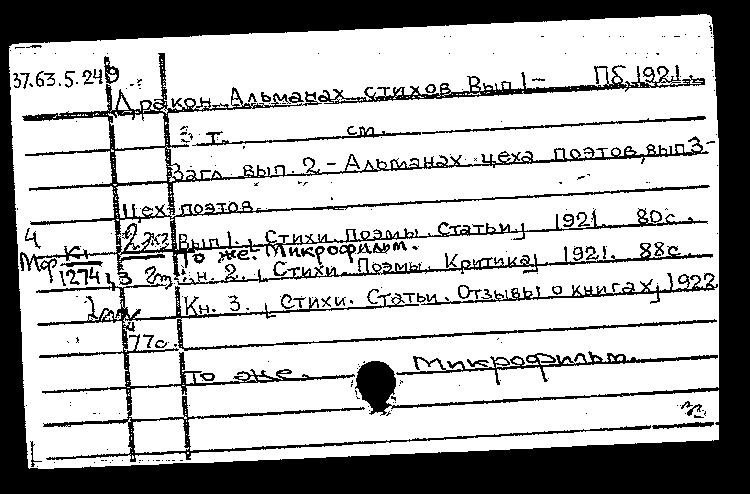 37.63.5.249
Дракон. Альманах стихов. Вып. 1- Пб, 1921.
3 т. см.
Загл. вып. 2 - Альманах цеха поэтов, вып 3-
Цех поэтов.
4 2 экз. Вып 1. [Стихи. Поэмы. Статьи] 1921. 80с.
Мф Кн. То же. Микрофильм.
1274 1,3 Кн. 2. [Стихи. Поэмы. Критика] 1921. 88с.
Кн. 3. [Стихи. Статьи. Отзывы о книгах] 1922
77с.
То же. Микрофильм.